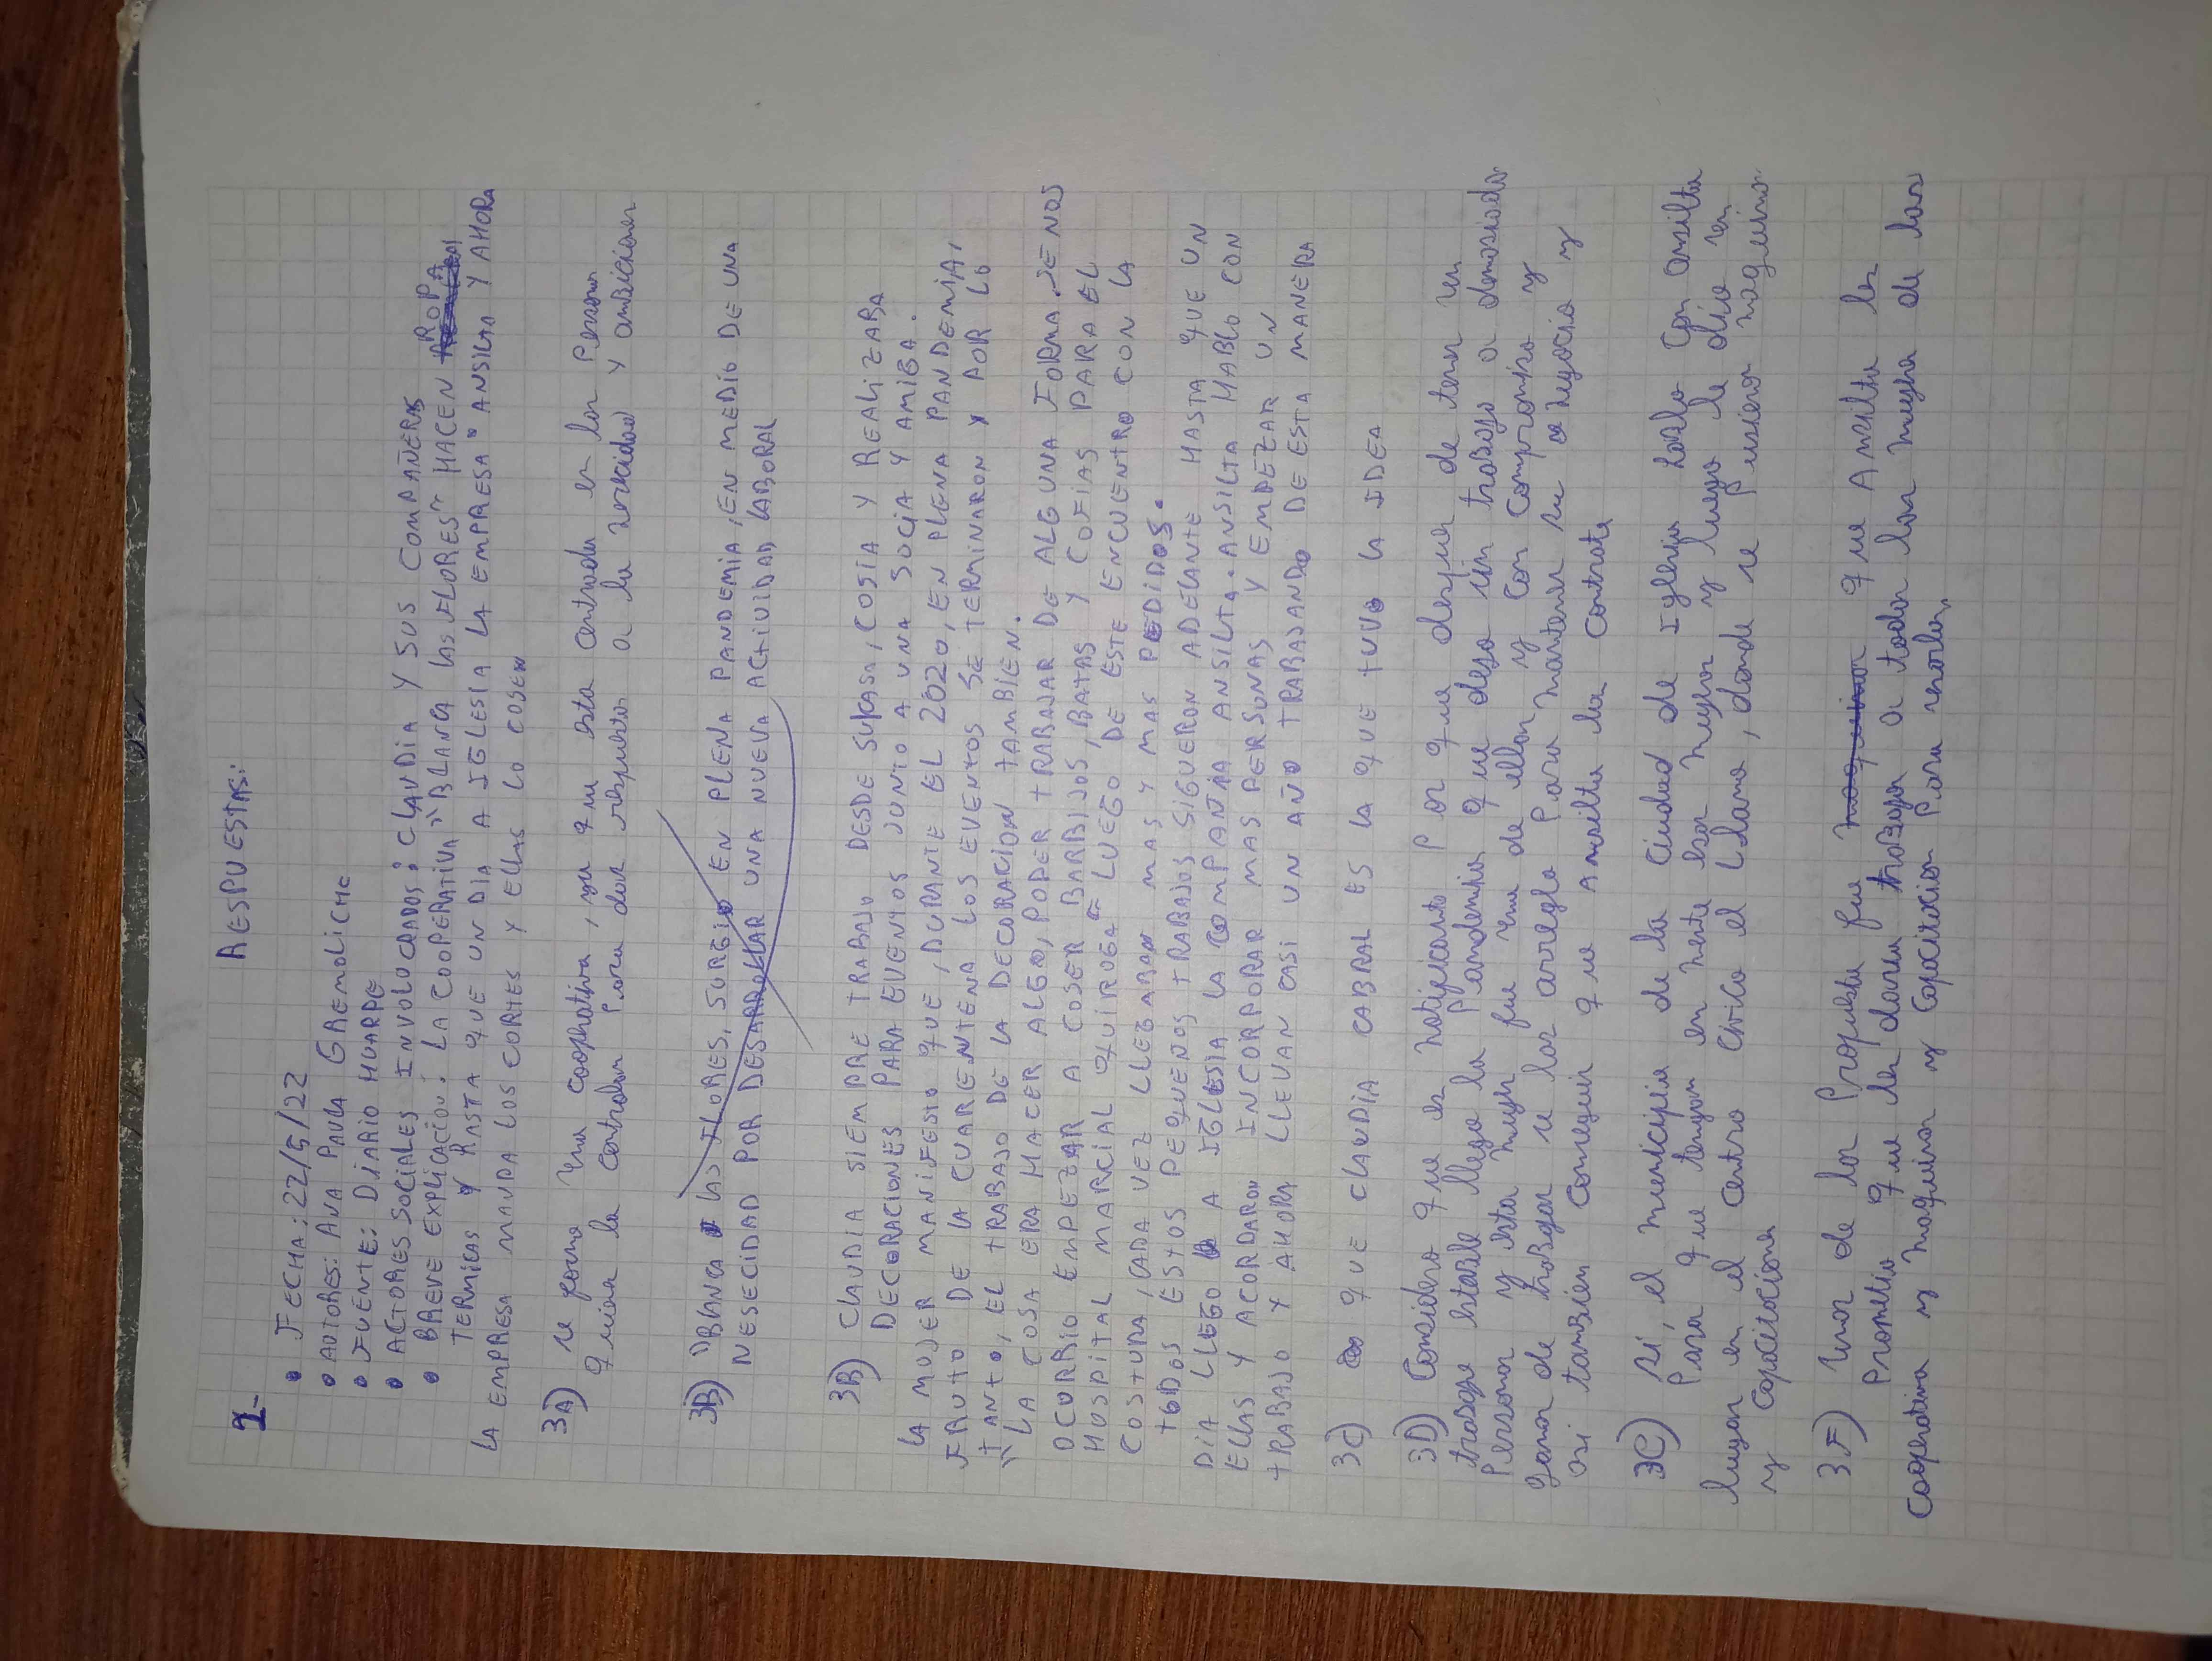 RESPUESTAS:
1-
• FECHA: 22/5/22
• AUTORES: ANA PAULA GREMOLICHE
• FUENTE: DIARIO HUARPE
• ACTORES SOCIALES INVOLUCRADOS: CLAUDIA Y SUS COMPAÑERAS
• BREVE EXPLICACION: LA COOPERATIVA "BLANCA LAS FLORES" HACEN ROPA
TERMICAS Y HASTA QUE UN DIA A IGLESIA LA EMPRESA "ANSILTA Y AHORA
LA EMPRESA MANDA LOS CORTES Y ELLAS LO COSEN
3A) se formo una cooperativa, ya que esta centrada en las Personas
quien la controlan Para dar respuestas a la necesidad y ambiciones
3B) "BLANCA LAS FLORES, SURGIO EN PLENA PANDEMIA, EN MEDIO DE UNA
NESECIDAD POR DESARROLLAR UNA NUEVA ACTIVIDAD LABORAL
3B) CLAUDIA SIEMPRE TRABAJO DESDE SU CASA, COSIA Y REALIZABA
DECORACIONES PARA EVENTOS JUNTO A UNA SOCIA Y AMIGA.
LA MUJER MANIFESTO QUE, DURANTE EL 2020, EN PLENA PANDEMIA,
FRUTO DE LA CUARENTENA LOS EVENTOS SE TERMINARON Y POR LO
TANTO, EL TRABAJO DE LA DECORACION TAMBIEN.
"LA COSA ERA HACER ALGO, PODER TRABAJAR DE ALGUNA FORMA. SE NOS
OCURRIO EMPEZAR A COSER BARBIJOS, BATAS Y COFIAS PARA EL
HOSPITAL MARCIAL QUIROGA. LUEGO DE ESTE ENCUENTRO CON LA
COSTURA, CADA VEZ LLEGABAN MAS Y MAS PEDIDOS.
TODOS ESTOS PEQUENOS TRABAJOS SIGUERON ADELANTE HASTA QUE UN
DIA LLEGO A IGLESIA LA COMPAÑIA ANSILTA. ANSILTA HABLO CON
ELLAS Y ACORDARON INCORPORAR MAS PERSONAS Y EMPEZAR UN
TRABAJO Y AHORA LLEVAN CASI UN AÑO TRABAJANDO DE ESTA MANERA
3C) QUE CLAUDIA CABRAL ES LA QUE TUVO LA IDEA
3D) Considero que es Satisfecho Por que despues de tener un
trabajo estable llego la Pandemia que dejo sin trabajo a demasiadas
Personas y esta mujer fue una de ellas y Con Compromiso y
ganas de trabajar se las arreglo Para mantener su negocio y
asi tambien Conseguir que Ansilta las Contrate
3E) si, el municipio de la Ciudad de Iglesia hablo Con ansilta
Para que tengan en mente las mujeres y luego le dio un
lugar en el Centro Civico el Llano, donde se Pusieron maquinas
y Capacitaciones
3F) Una de las Propuestas fue que Ansilta les
Prometio que les daran trabajo a todas las mujeres de las
Cooperativa y maquinas y Capacitacion Para usarlas,